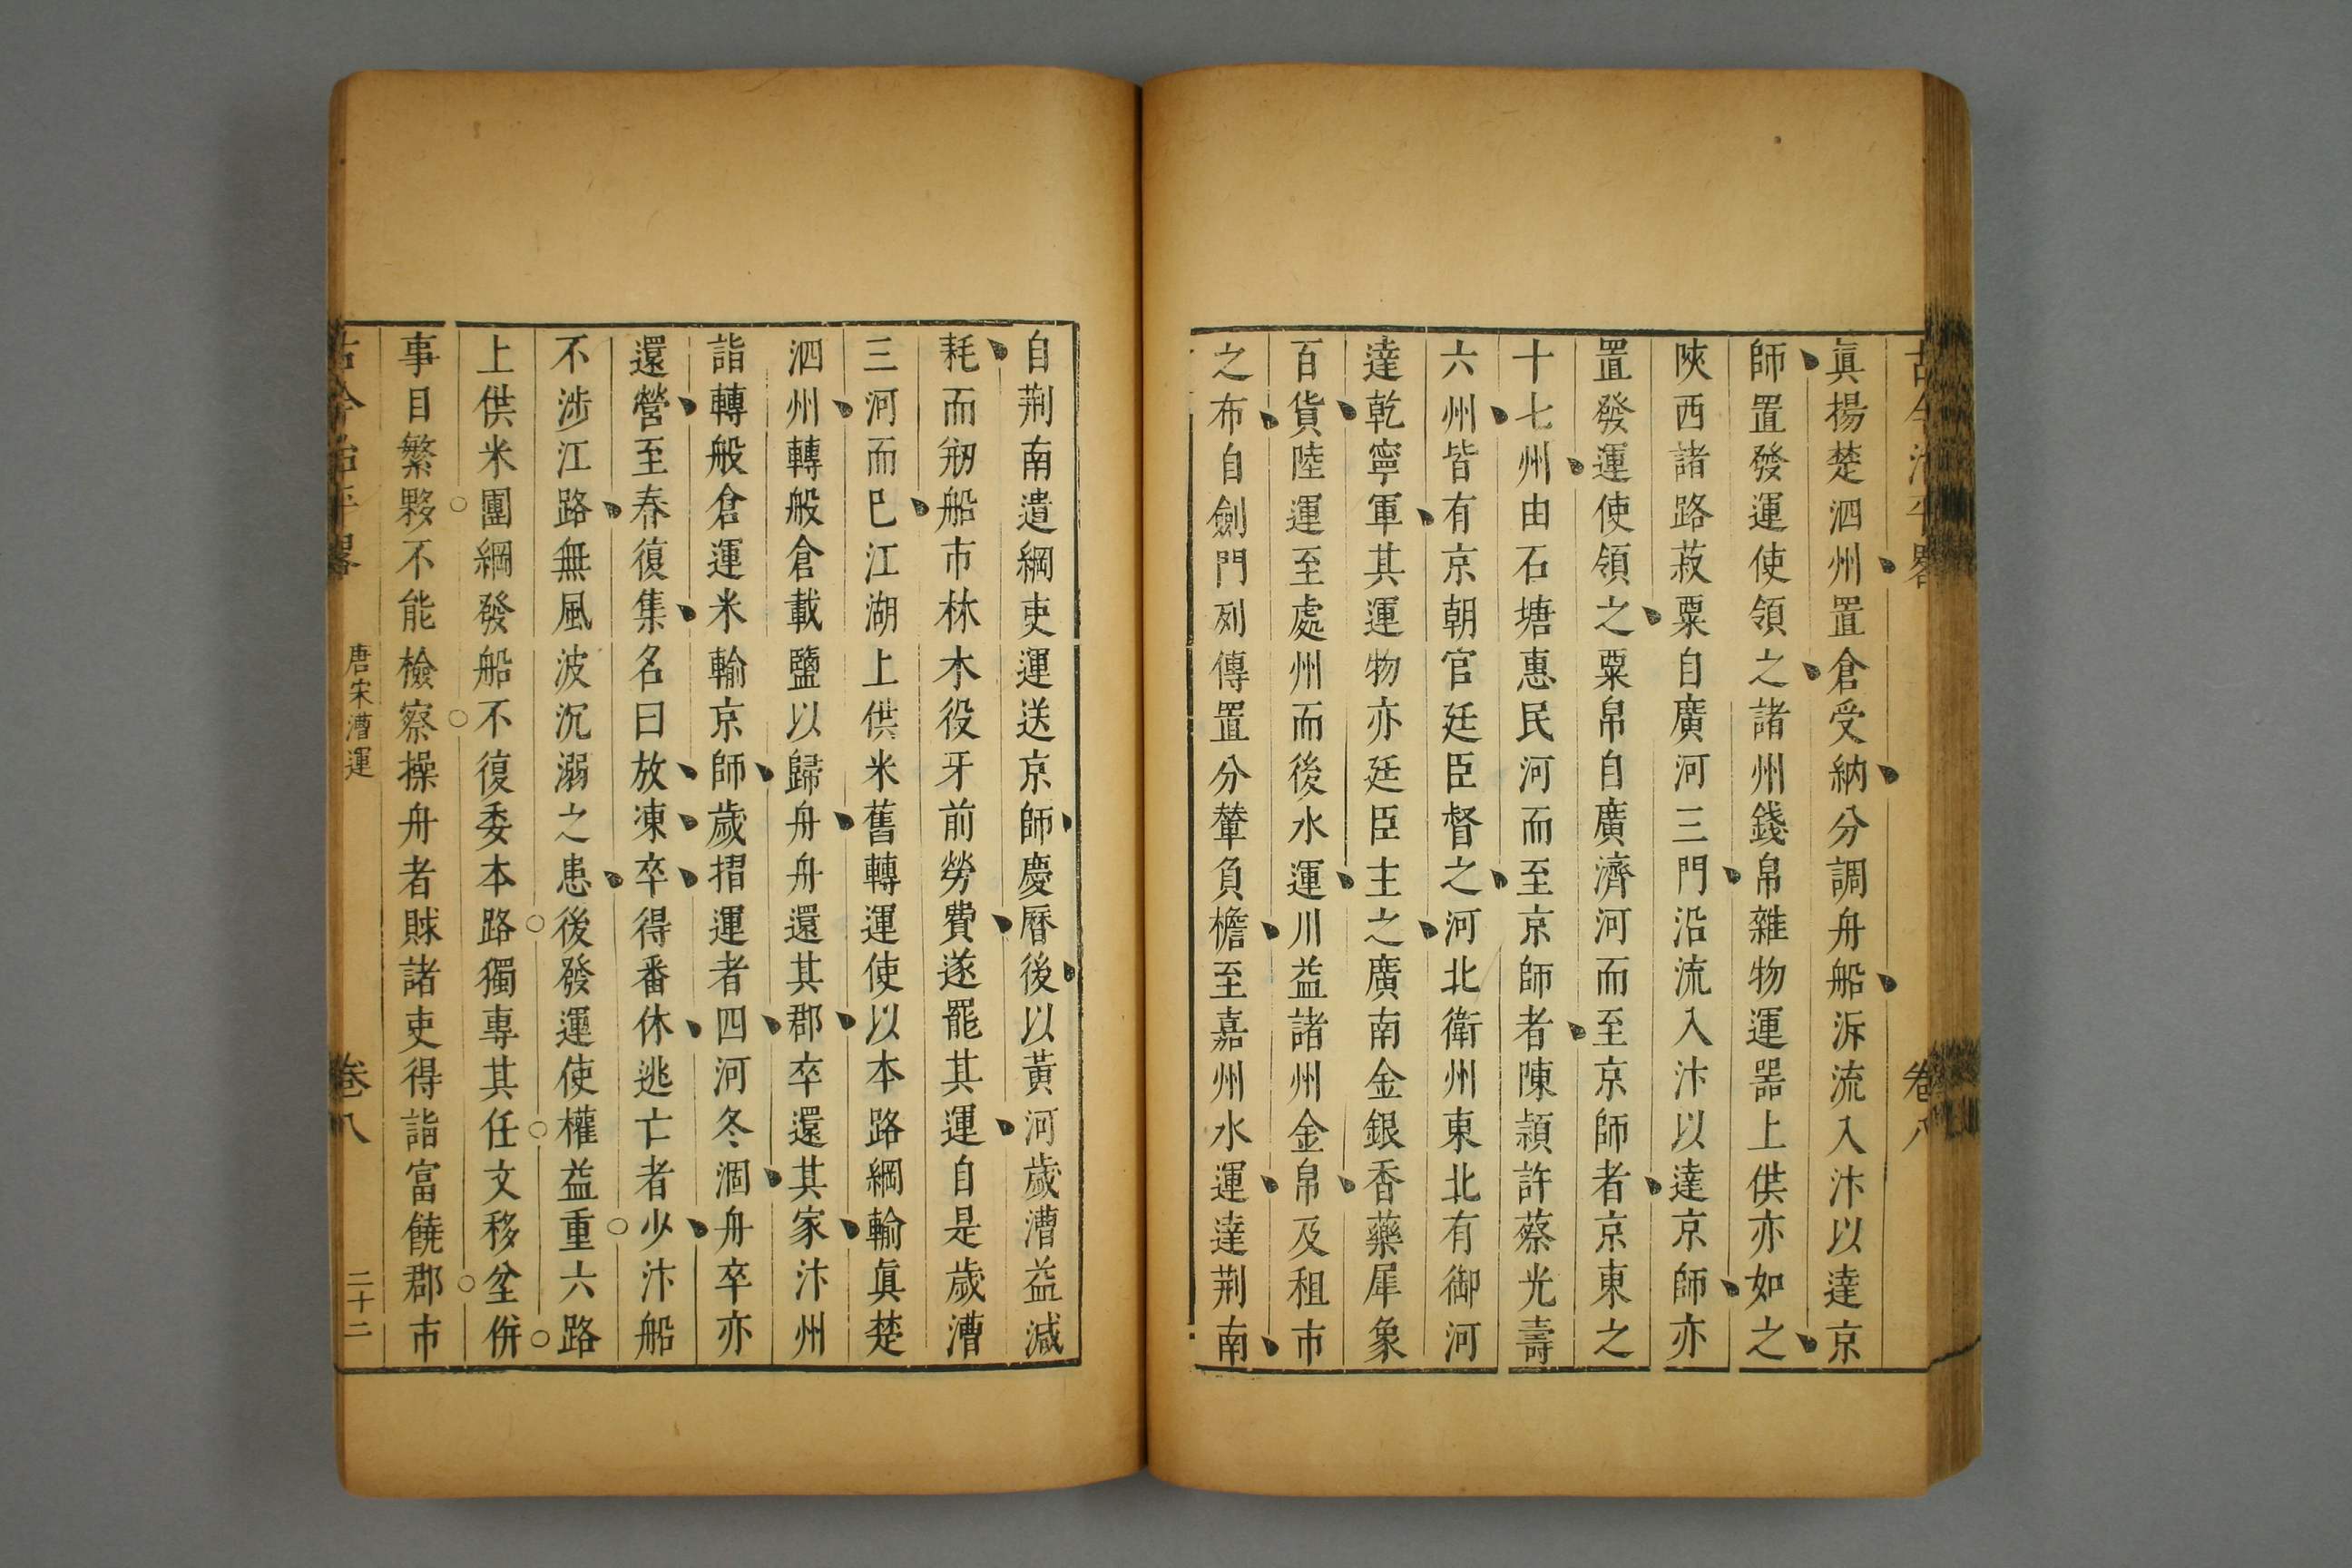 眞揚楚泗州置倉受納分調舟船泝流入汴以達京
師置發運使領之諸州錢帛雜物運噐上供亦如之
陜西諸路菽粟自廣河三門沿流入汴以達京師亦
置發運使領之粟帛自廣濟河而至京師者京東之
十七州由石塘惠民河而至京師者陳頴許蔡光壽
六州皆有京朝官廷臣督之河北衛州東北有御河
達乾寧軍其運物亦廷臣主之廣南金銀香藥犀象
百貨陸運至處州而後水運川益諸州金帛及租市
之布自劍門列傳置分輦負檐至嘉州水運達荆南
自荆南遣綱吏運送京師慶曆後以黃河歲漕益減
耗而剏船市林木役牙前勞費遂罷其運自是歲漕
三河而巳江湖上供米舊轉運使以本路綱輸眞楚
泗州轉般倉載鹽以歸舟舟還其郡卒還其家汴州
詣轉般倉運米輸京師歲摺運者四河冬涸舟卒亦
還營至春復集名曰放凍卒得番休逃亡者少汴船
不涉江路無風波沉溺之患後發運使權益重六路
上供米團綱發船不復委本路獨專其任文移坌併
事目繁夥不能檢察操舟者賕諸吏得詣富饒郡市
古今治平畧 唐宋漕運 卷八 二十二